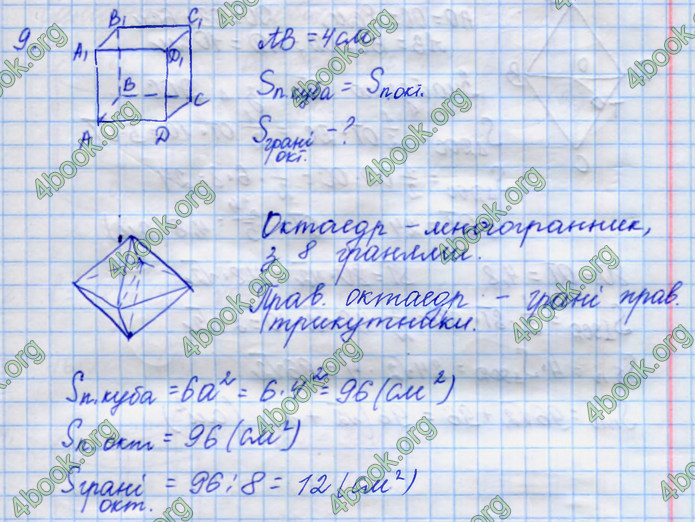 9.
B₁ C₁
A₁ D₁
B C
A D
AB = 4 см
Sп.куба = Sп.окт.
Sграні окт. - ?
Октаедр – многогранник,
з 8 гранями.
Прав. октаедр - грані прав.
трикутники.
Sп.куба = 6a² = 6·4² = 96 (см²)
Sп.окт = 96 (см²)
Sграні окт. = 96 : 8 = 12 (см²)
4book.org